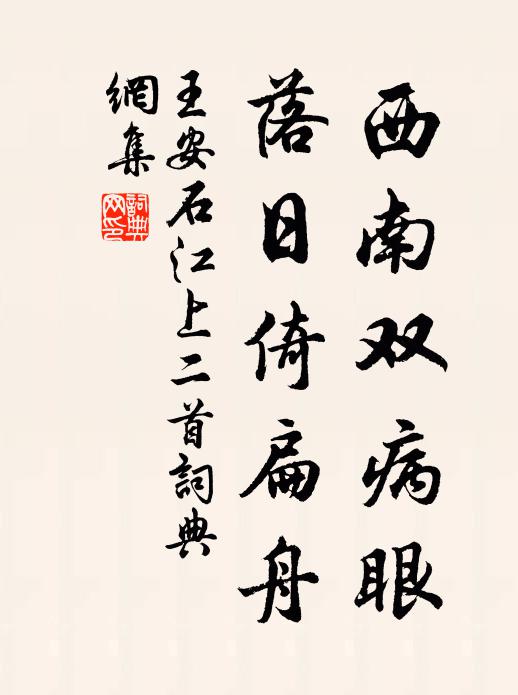 西南双病眼
落日倚扁舟
王安石江上二首詞典
網集
詞典
网印